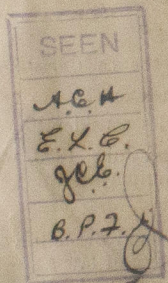 SEEN
A.C.H
E.L.C.
JCE.
B.P.F.